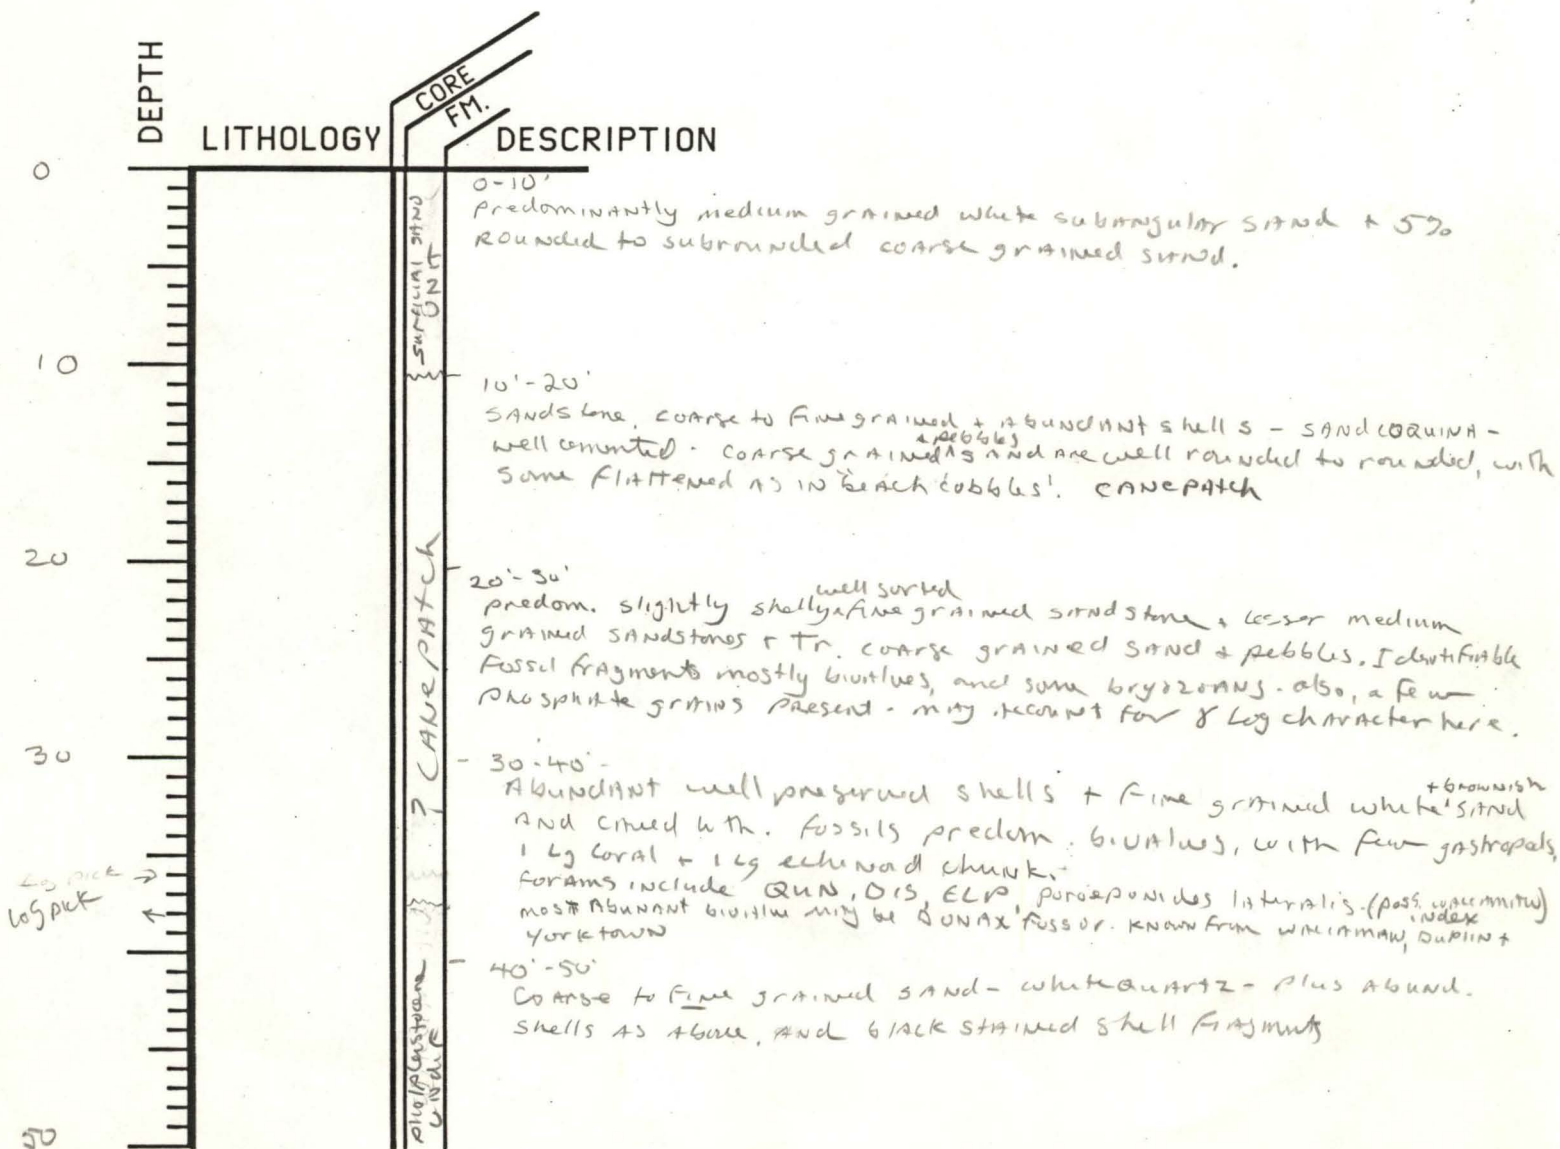 DEPTH
LITHOLOGY
CORE
FM.
DESCRIPTION
0
10
20
30
50
Log pick →
Log pick ←
surficial sand
UNIT
? CANEPATCH
plio/pleistocene
undif
0-10'
predominantly medium grained white subangular sand + 5%
rounded to subrounded coarse grained sand.
10'-20'
Sandstone, coarse to fine grained + abundant shells - sand coquina -
+ pebbles
well cemented. coarse grained ^ sand are well rounded to rounded, with
some flattened as in 'beach cobbles'. CANEPATCH
20'-30'
well sorted
predom. slightly shelly ^ fine grained sandstone + lesser medium
grained sandstones + Tr. coarse grained sand + pebbles. Identifiable
fossil fragments mostly bivalves, and some bryozoans. also, a few
phosphate grains present - may account for γ Log character here.
30-40'
+ brownish
Abundant well preserved shells + fine grained white ' sand
and . fossils predom. bivalves, with few gastropods,
1 Lg coral + 1 Lg echinoid chunk.
forams include QUN, DIS, ELP, poroeponides lateralis. (poss. waccamaw)
index
most Abunant bivalve may be DONAX fossor. known from waccamaw, Duplin +
Yorktown
40'-50'
Coarse to fine grained sand - white quartz - plus abund.
shells as above, and black stained shell fragments